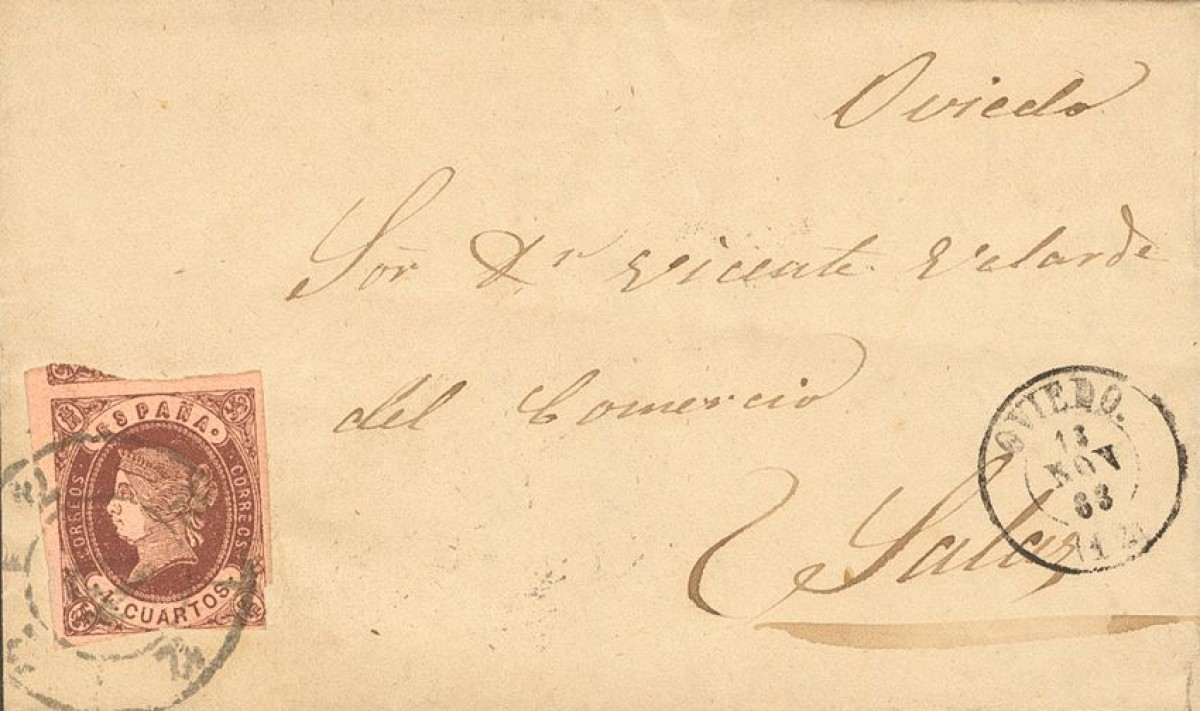 Oviedo
Sor Dn Vicente Velarde
del Comercio
Salas
ESPAÑA
CORREOS
CORREOS
4 CUARTOS
OVIEDO.
13
NOV
63